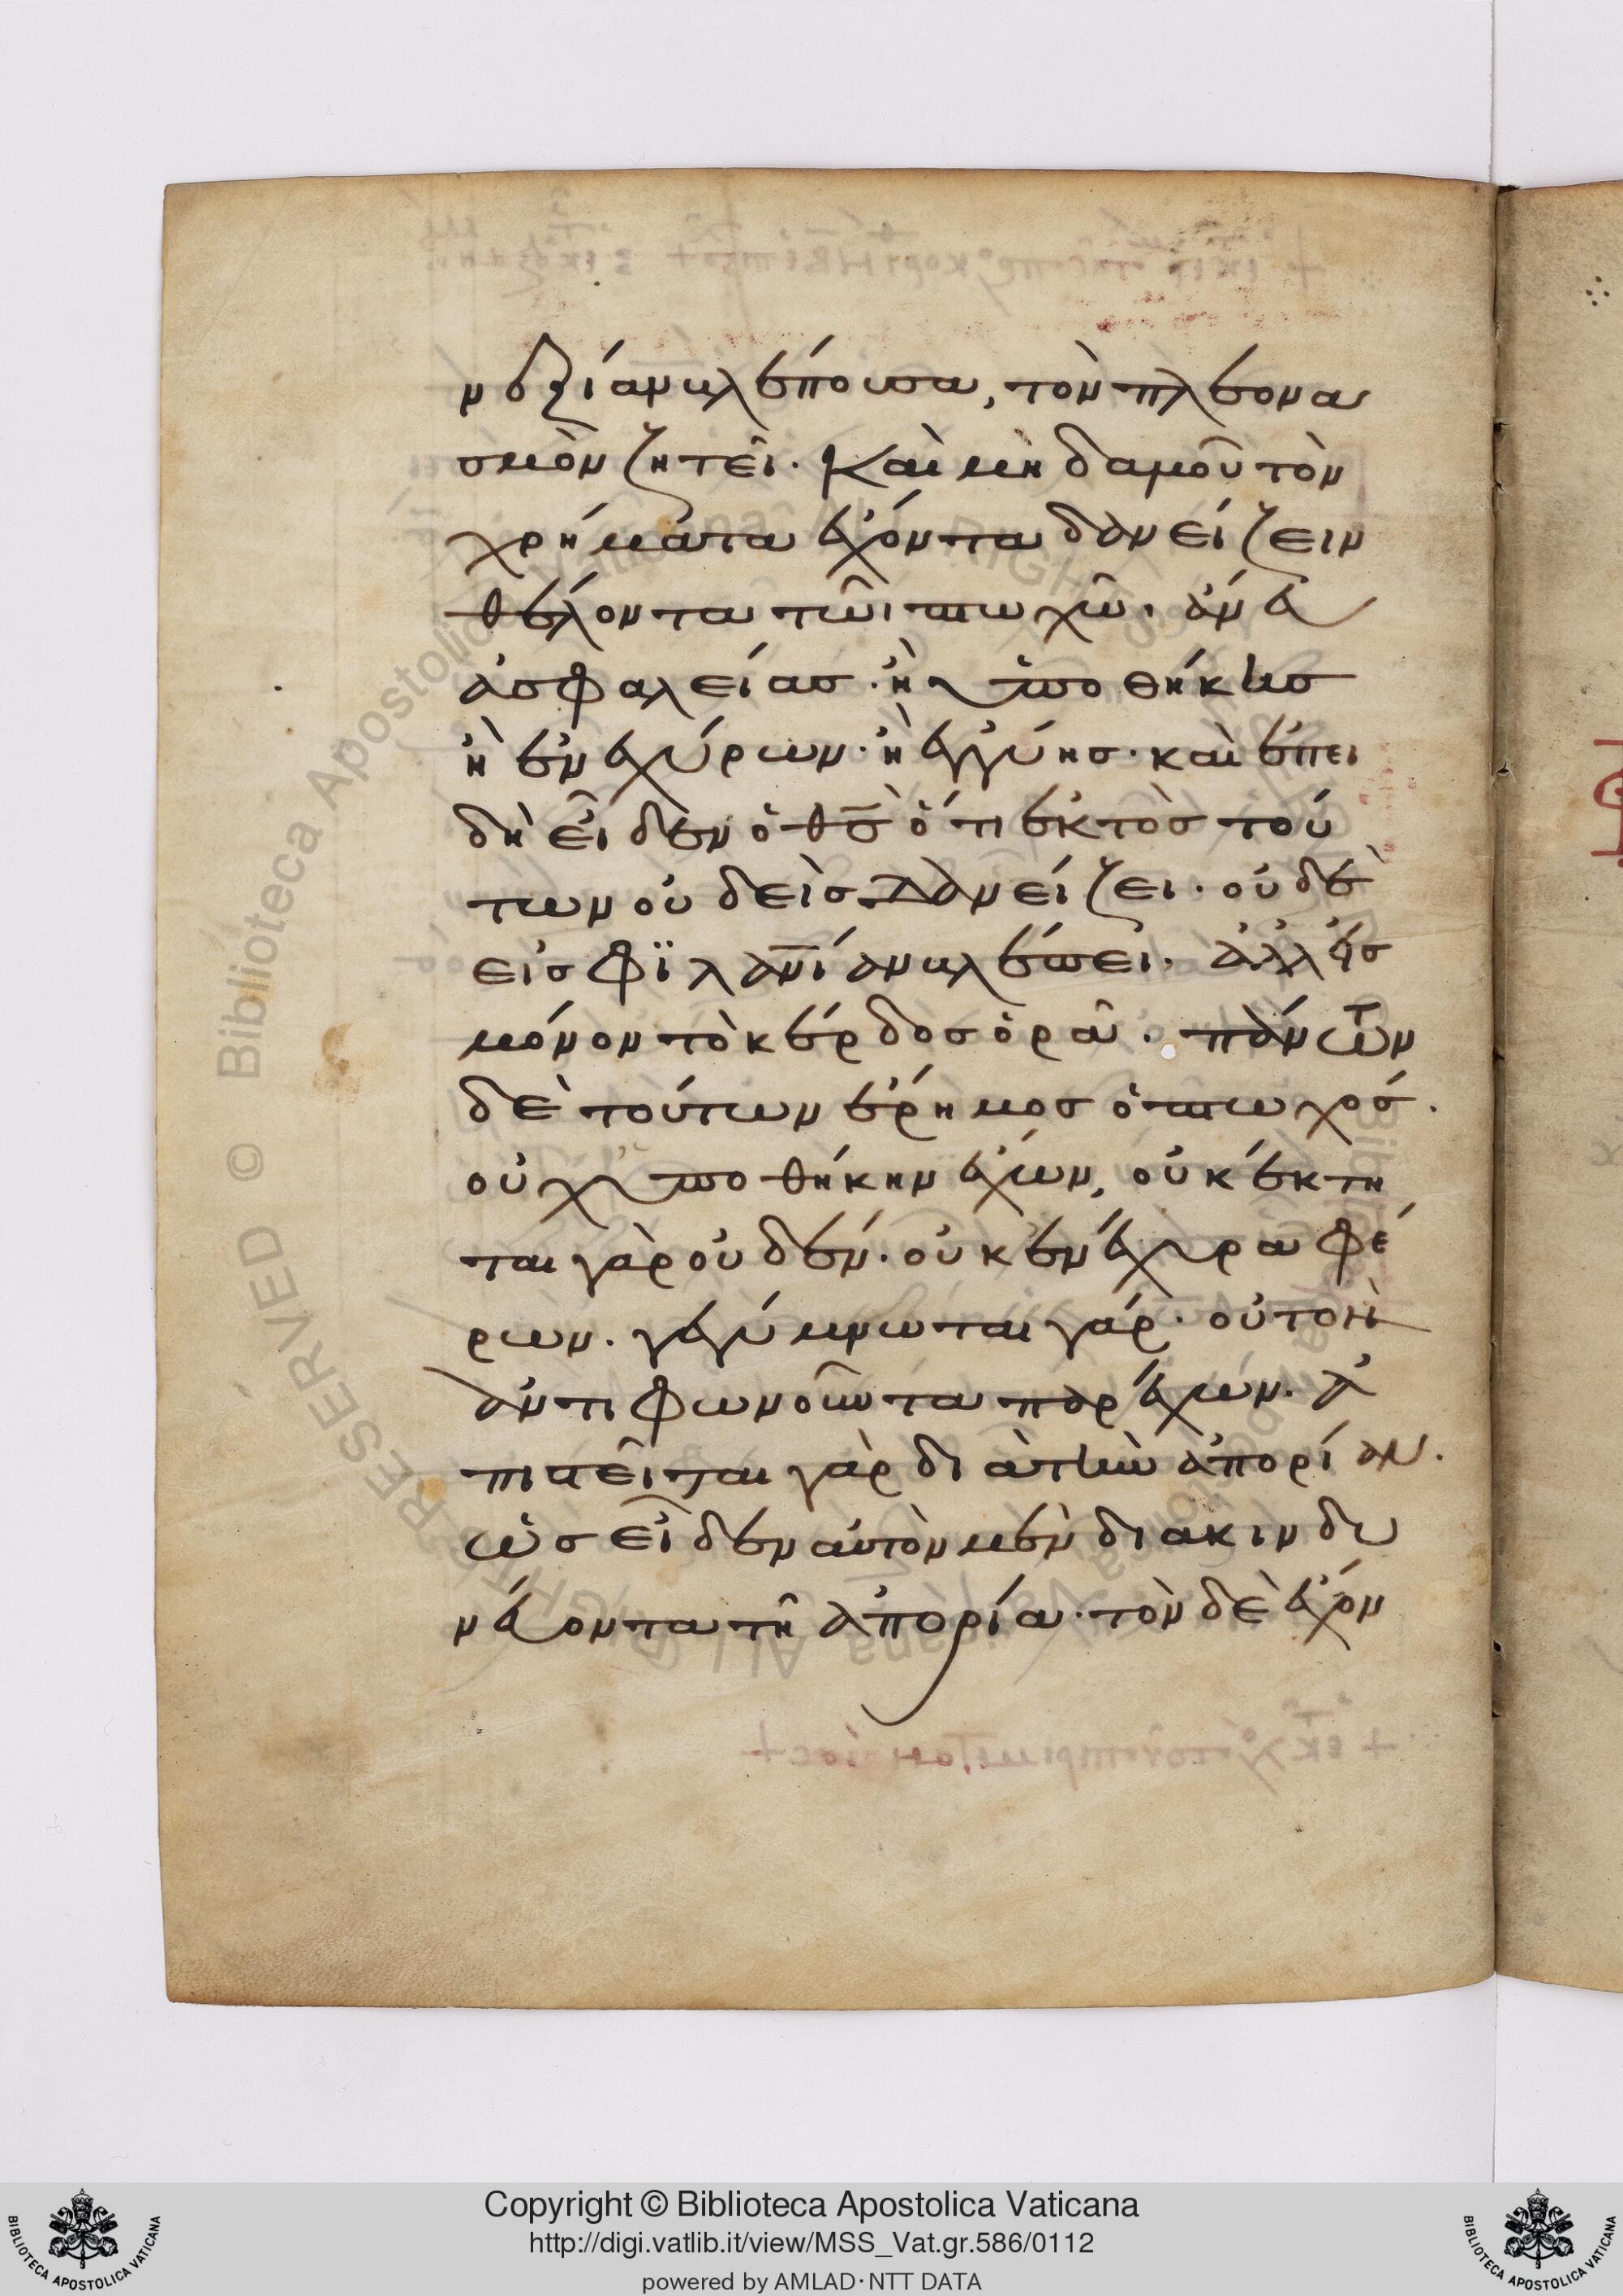 νδεξίαν βλέπουσα, τὸν πλεονα
σμὸν ζητεῖ. Καὶ μηδαμοῦ τὸν
χρήματα ἔχοντα δανείζειν
θέλοντα τῶι πτωχῶ. ἄνευ
ἀσφαλείας. ἢ ὑποθήκης
ἢ ἐνεχύρων. ἢ ἐγγύης. καὶ ἐπει
δὴ εἶδεν ὁ θς̅ ὅτι ἐκτὸς τού
των οὐδεὶς δανείζει. οὐδὲ
εἰς φιλανίαν βλέπει. ἀλλ' εἰς
μόνον τὸ κέρδος ὁρᾶ. πάντων
δὲ τούτων ἔρημος ὁ πτωχός.
οὐχ ὑποθήκην ἔχων, οὐ κέκτη
ται γὰρ οὐδέν. οὐκ ἐνέχυρα φέ
ρων. γεγύμνωται γάρ. οὐ τὸν
ἀντιφωνοῦντα παρέχων. ἀ
πιστεῖται γὰρ διὰ τὴν ἀπορίαν.
ὡς εἶδεν αὐτὸν μὲν διακινδυ
νεύοντα τῆ ἀπορία. τὸν δὲ ἔχον
Copyright © Biblioteca Apostolica Vaticana
http://digi.vatlib.it/view/MSS_Vat.gr.586/0112
powered by AMLAD·NTT DATA
BIBLIOTECA APOSTOLICA VATICANA
BIBLIOTECA APOSTOLICA VATICANA